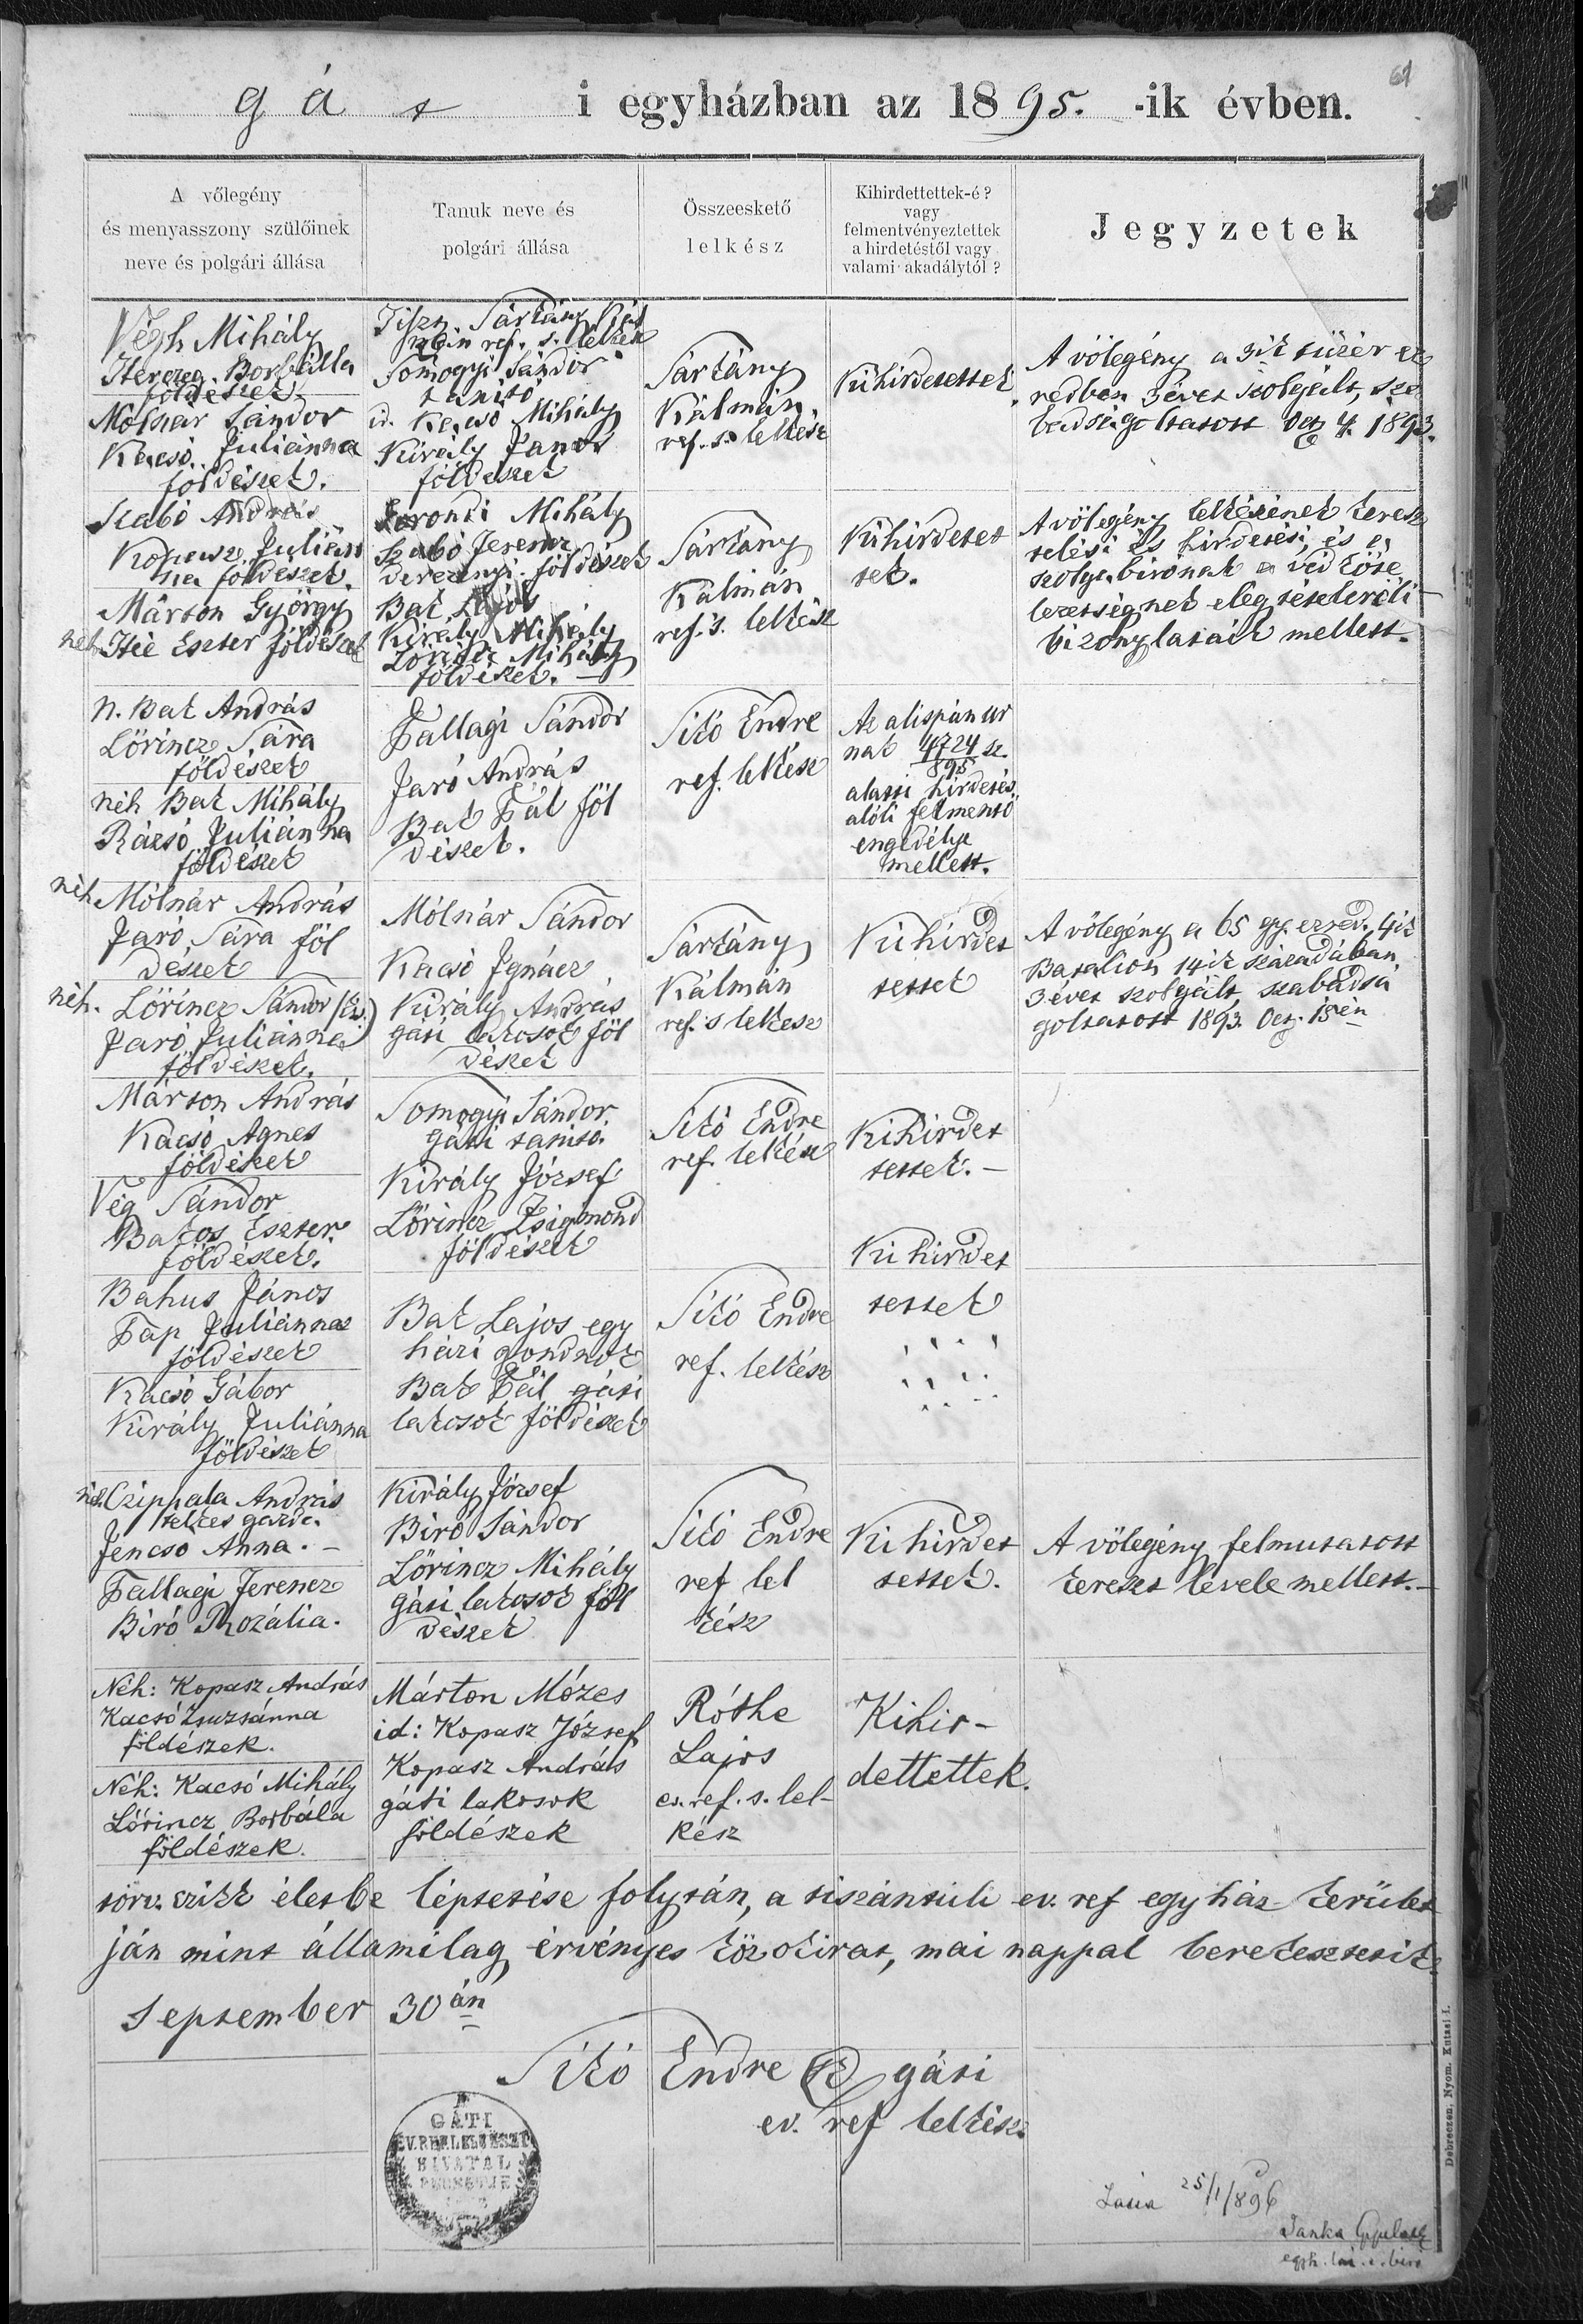 61
gá t i egyházban az 1895. -ik évben.
A vőlegény
és menyasszony szülőinek
neve és polgári állása
Tanuk neve és
polgári állása
Összeeskető
lelkész
Kihirdettettek-é?
vagy
felmentvényeztettek
a hirdetéstől vagy
valami akadálytól?
Jegyzetek
Végh Mihály
Herczeg Borbálla
földészek
Molnár Sándor
Kacsó Juliánna
földészek.
Tiszt. Sárkány Kál
mán ref. s. lelkész
Somogyi Sándor
tanító
id. Kacsó Mihály
Király János
földészek
Sárkány
Kálmán
ref. s. lelkész
Kihirdetettek
A vőlegény a 3ik tüzér ez
redben 3 évet szolgált, sza
badságoltatott 4. 1893.
Szabó András
Kopasz Julián
na földészek.
Márton György
néh. Ilié Eszter földészek
Mihály
Szabó Ferencz
derczenyi földészek
Bak Lajos
Király Mihály
Lőrincz Mihály
földészek.
Sárkány
Kálmán
ref. s. lelkész
Kihirdettet
tek.
A vőlegény lelkészének keresz
telési és hirdetési, és a
szolgabirónak a védkőte
lezettségnek elégtételéről
bizonylataik mellett.
N. Bak András
Lőrincz Sára
földészek
néh Bak Mihály
Rácsó Juliánna
földészek
Pallagi Sándor
Jaró András
Bak Pál föl
dészek.
Sikó Endre
ref. lelkész
Az alispán ur
nak 4724/895 sz.
alatti hirdetés
alóli felmentő
engedélye
mellett.
néh Molnár András
Jaró Sára föl
dészek
néh. Lőrincz Sándor
Jaró Juliánna
földészek.
Mólnár Sándor
Kacsó Ignácz
Király András
gáti lakosok föl
dészek
Sárkány
Kálmán
ref. s lelkész
Kihirdet
tettek
A vőlegény a 65 gy. ezred. 4ik
Batalion 14ik századában
3 évet szolgált, szabadsá
goltatott 1893. én
Márton András
Kacsó Ágnes
földészek
Vég Sándor
Bakos Eszter
földészek.
Somogyi Sándor
gáti tanitó.
Király József
Lőrincz Zsigmond
földészek
Sikó Endre
ref. lelkész
Kihirdet
tettek.–
Bahus János
Pap Juliánna
földészek
Kacsó Gábor
Király Juliánna
földészek
Bak Lajos egy
házi gondnok
Bak Pál gáti
lakosok földészek
Sikó Endre
ref. lelkész
Kihirdet
tettek
néh. Czippala András
telkes gazda.
Jencso Anna.–
Pallagi Ferencz
Biró Rozália.
Király József
Biró Sándor
Lőrincz Mihály
gáti lakosok föl
dészek
Sikó Endre
ref lel
kész
Kihirdet
tettek.
A vőlegény felmutatott
kereszt levele mellett.–
Néh: Kopasz András
Kacsó Zsuzsánna
földészek.
Néh: Kacsó Mihály
Lőrincz Borbála
földészek.
Márton Mózes
id: Kopasz József
Kopasz András
gáti lakosok
földészek
Róthe
Lajos
ev. ref. s. lel-
kész
Kihir-
dettettek.
törv. czikk életbe léptetése folytán, a tiszántuli ev. ref egyház kerület
ján mint államilag érvényes közokirat, mai nappal berekesztetik.
September 30án
Sikó Endre gáti
ev. ref lelkész
A
GÁTI
EV. REF. LELKÉSZI
HIVATAL
PECSÉTJE
25/1/896
Debreczen, Nyom. Kutasi I.